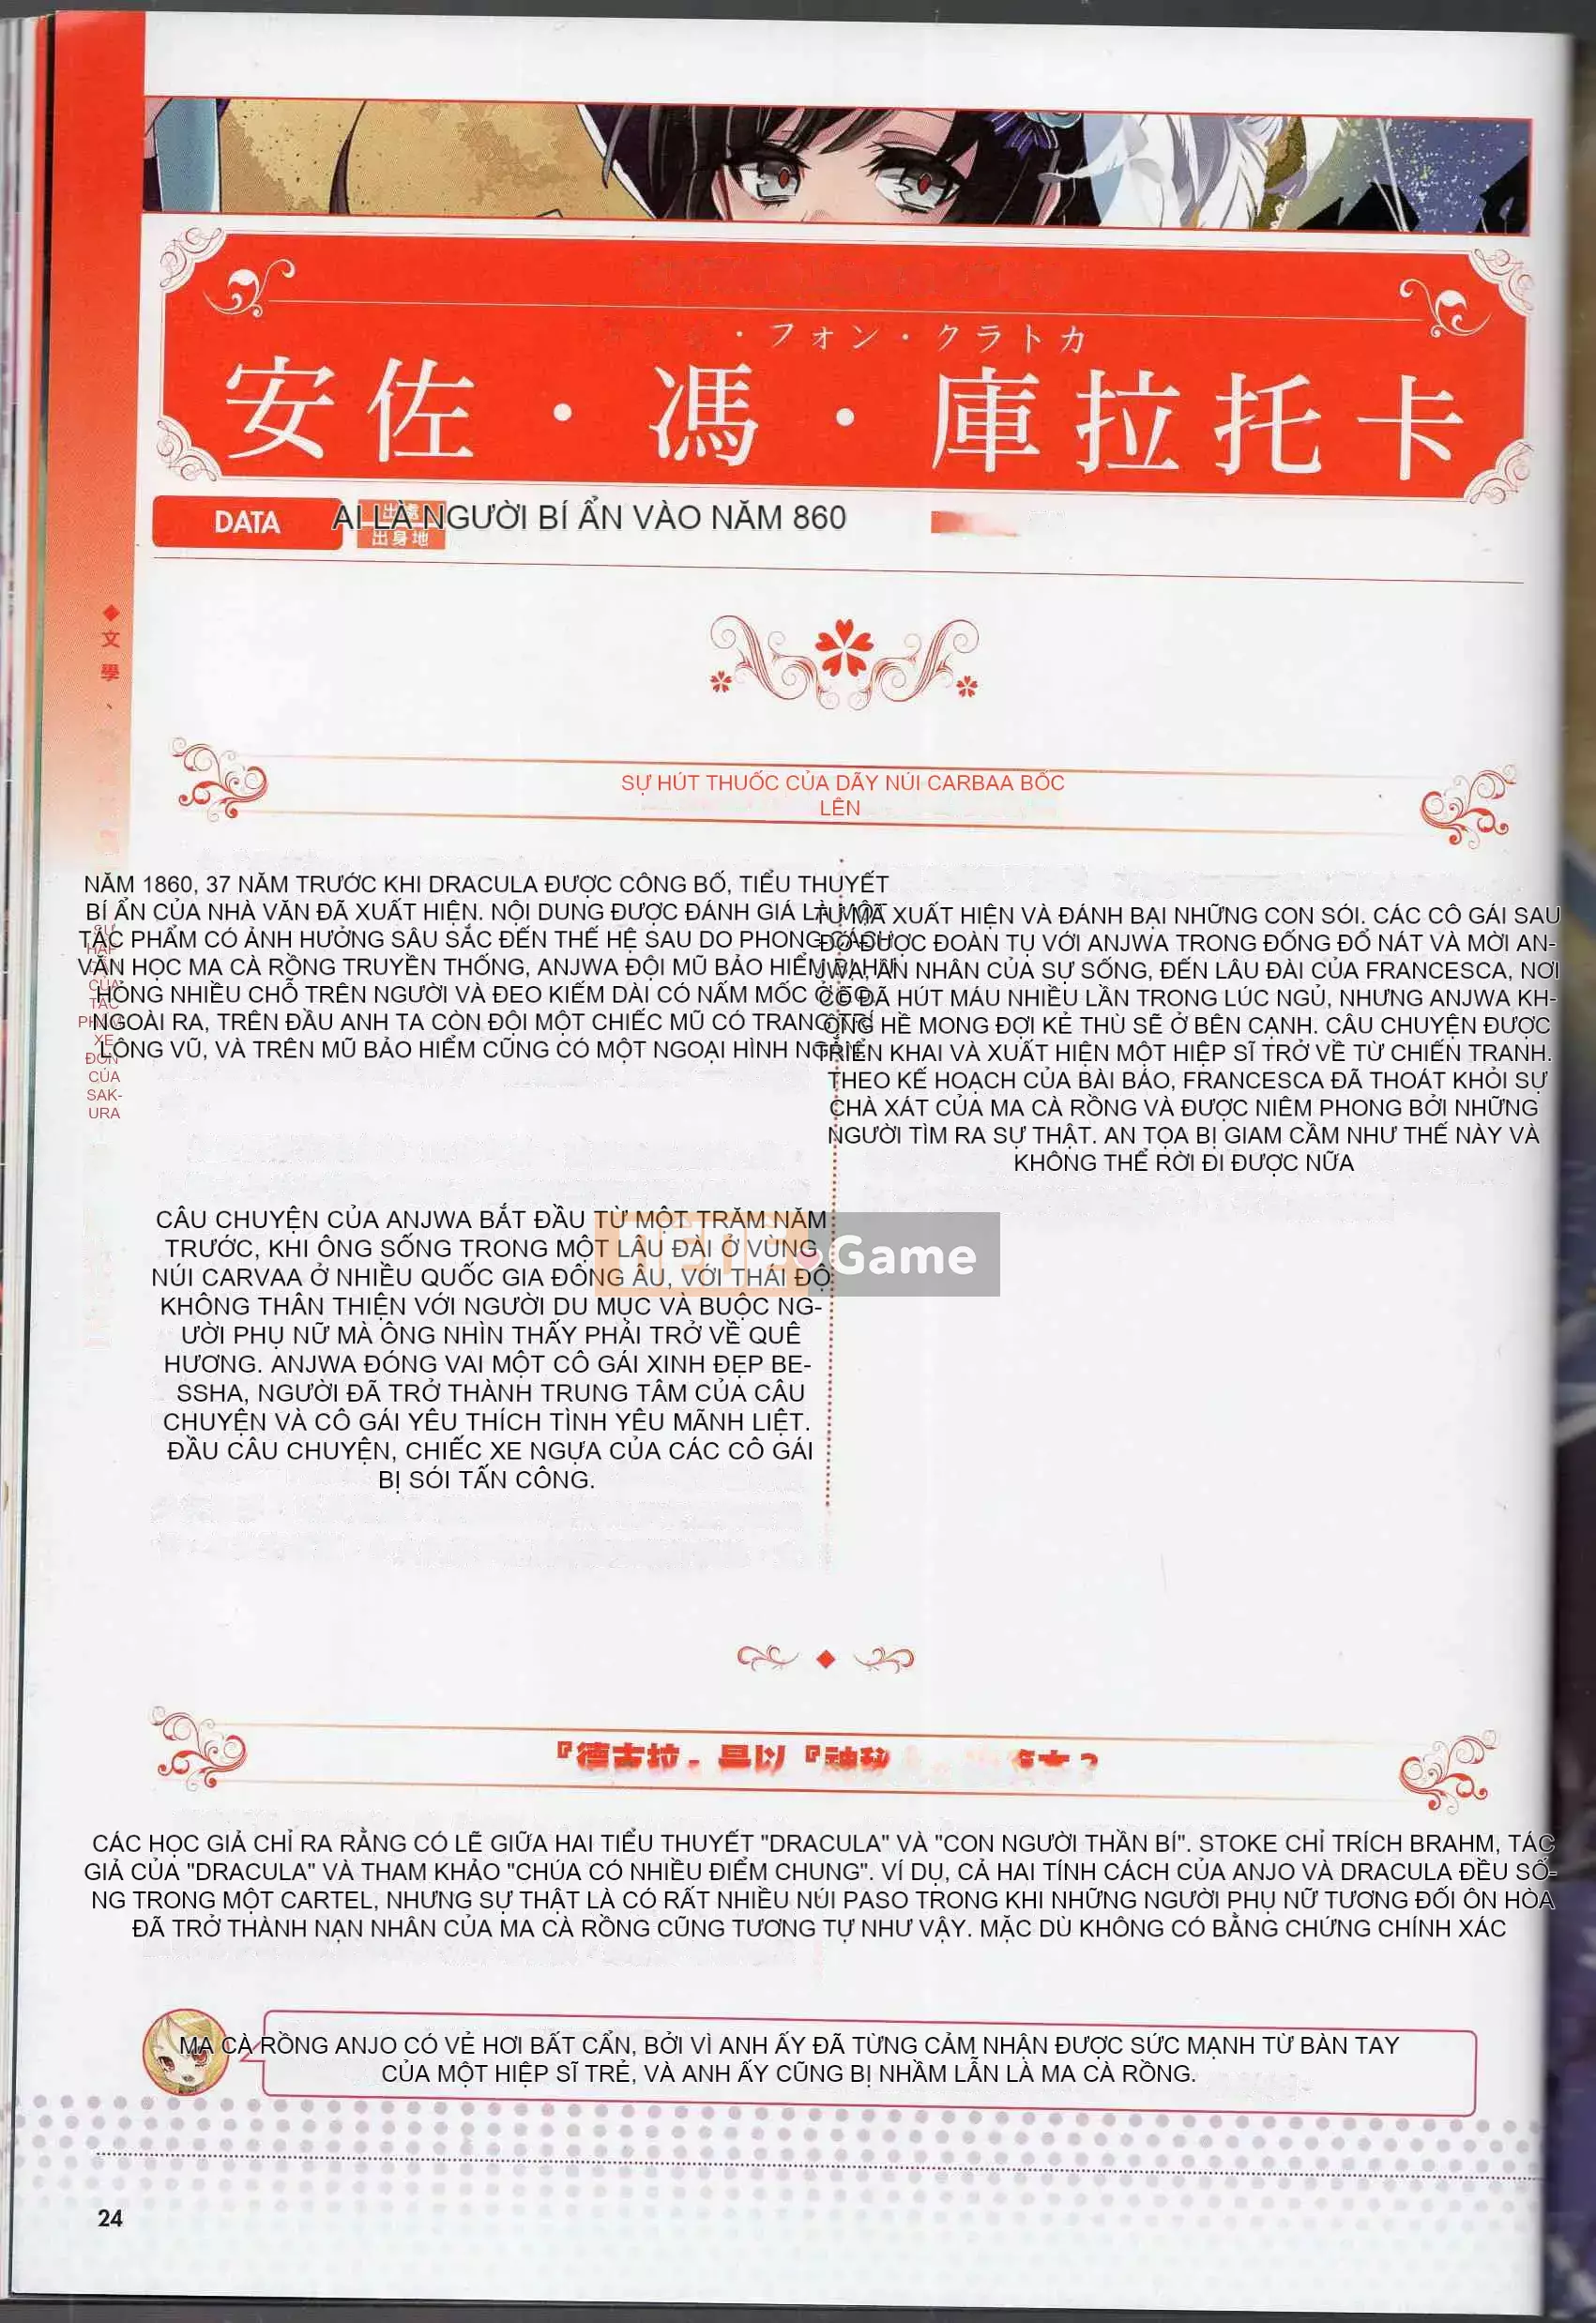 ・フォン・クラトカ
安佐・馮・庫拉托卡
DATA
出處
出身地
AI LÀ NGƯỜI BÍ ẨN VÀO NĂM 860
◆文學、
SỰ HÚT THUỐC CỦA DÃY NÚI CARBAA BỐC
LÊN
NĂM 1860, 37 NĂM TRƯỚC KHI DRACULA ĐƯỢC CÔNG BỐ, TIỂU THUYẾT
BÍ ẨN CỦA NHÀ VĂN ĐÃ XUẤT HIỆN. NỘI DUNG ĐƯỢC ĐÁNH GIÁ LÀ MỘT
TÁC PHẨM CÓ ẢNH HƯỞNG SÂU SẮC ĐẾN THẾ HỆ SAU DO PHONG CÁCH
VĂN HỌC MA CÀ RỒNG TRUYỀN THỐNG, ANJWA ĐỘI MŨ BẢO HIỂM BỊ HƯ
HỎNG NHIỀU CHỖ TRÊN NGƯỜI VÀ ĐEO KIẾM DÀI CÓ NẤM MỐC Ở EO.
NGOÀI RA, TRÊN ĐẦU ANH TA CÒN ĐỘI MỘT CHIẾC MŨ CÓ TRANG TRÍ
LÔNG VŨ, VÀ TRÊN MŨ BẢO HIỂM CŨNG CÓ MỘT NGOẠI HÌNH
SỰ
HẤP
CỦA
TÁC
PHẨM
XE
ĐƠN
CỦA
SAK-
URA
CÂU CHUYỆN CỦA ANJWA BẮT ĐẦU TỪ MỘT TRĂM NĂM
TRƯỚC, KHI ÔNG SỐNG TRONG MỘT LÂU ĐÀI Ở VÙNG
NÚI CARVAA Ở NHIỀU QUỐC GIA ĐÔNG ÂU, VỚI THÁI ĐỘ
KHÔNG THÂN THIỆN VỚI NGƯỜI DU MỤC VÀ BUỘC NG-
ƯỜI PHỤ NỮ MÀ ÔNG NHÌN THẤY PHẢI TRỞ VỀ QUÊ
HƯƠNG. ANJWA ĐÓNG VAI MỘT CÔ GÁI XINH ĐẸP BE-
SSHA, NGƯỜI ĐÃ TRỞ THÀNH TRUNG TÂM CỦA CÂU
CHUYỆN VÀ CÔ GÁI YÊU THÍCH TÌNH YÊU MÃNH LIỆT.
ĐẦU CÂU CHUYỆN, CHIẾC XE NGỰA CỦA CÁC CÔ GÁI
BỊ SÓI TẤN CÔNG.
TƯ MÃ XUẤT HIỆN VÀ ĐÁNH BẠI NHỮNG CON SÓI. CÁC CÔ GÁI SAU
ĐÓ ĐƯỢC ĐOÀN TỤ VỚI ANJWA TRONG ĐỐNG ĐỔ NÁT VÀ MỜI AN-
JWA, ÂN NHÂN CỦA SỰ SỐNG, ĐẾN LÂU ĐÀI CỦA FRANCESCA, NƠI
CÔ ĐÃ HÚT MÁU NHIỀU LẦN TRONG LÚC NGỦ, NHƯNG ANJWA KH-
ÔNG HỀ MONG ĐỢI KẺ THÙ SẼ Ở BÊN CẠNH. CÂU CHUYỆN ĐƯỢC
TRIỂN KHAI VÀ XUẤT HIỆN MỘT HIỆP SĨ TRỞ VỀ TỪ CHIẾN TRANH.
THEO KẾ HOẠCH CỦA BÀI BÁO, FRANCESCA ĐÃ THOÁT KHỎI SỰ
CHÀ XÁT CỦA MA CÀ RỒNG VÀ ĐƯỢC NIÊM PHONG BỞI NHỮNG
NGƯỜI TÌM RA SỰ THẬT. AN TỌA BỊ GIAM CẦM NHƯ THẾ NÀY VÀ
KHÔNG THỂ RỜI ĐI ĐƯỢC NỮA
NENE Game
『德古拉』是以『神秘
CÁC HỌC GIẢ CHỈ RA RẰNG CÓ LẼ GIỮA HAI TIỂU THUYẾT "DRACULA" VÀ "CON NGƯỜI THẦN BÍ". STOKE CHỈ TRÍCH BRAHM, TÁC
GIẢ CỦA "DRACULA" VÀ THAM KHẢO "CHÚA CÓ NHIỀU ĐIỂM CHUNG". VÍ DỤ, CẢ HAI TÍNH CÁCH CỦA ANJO VÀ DRACULA ĐỀU SỐ-
NG TRONG MỘT CARTEL, NHƯNG SỰ THẬT LÀ CÓ RẤT NHIỀU NÚI PASO TRONG KHI NHỮNG NGƯỜI PHỤ NỮ TƯƠNG ĐỐI ÔN HÒA
ĐÃ TRỞ THÀNH NẠN NHÂN CỦA MA CÀ RỒNG CŨNG TƯƠNG TỰ NHƯ VẬY. MẶC DÙ KHÔNG CÓ BẰNG CHỨNG CHÍNH XÁC
MA CÀ RỒNG ANJO CÓ VẺ HƠI BẤT CẨN, BỞI VÌ ANH ẤY ĐÃ TỪNG CẢM NHẬN ĐƯỢC SỨC MẠNH TỪ BÀN TAY
CỦA MỘT HIỆP SĨ TRẺ, VÀ ANH ẤY CŨNG BỊ NHẦM LẪN LÀ MA CÀ RỒNG.
24